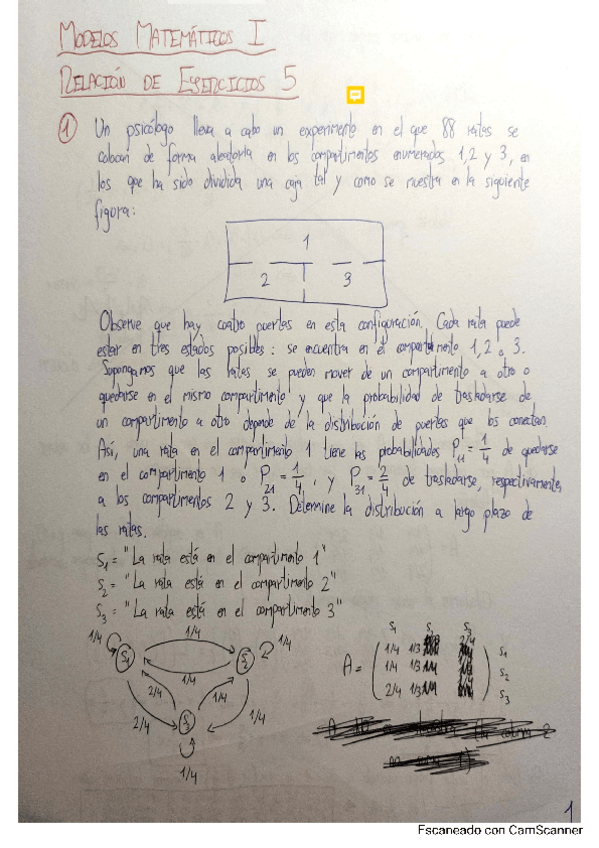 MODELOS MATEMÁTICOS I
RELACIÓN DE EJERCICIOS 5
1 Un psicólogo lleva a cabo un experimento en el que 88 ratas se
colocan de forma aleatoria en los compartimentos enumerados 1, 2 y 3, en
los que ha sido dividida una caja tal y como se muestra en la siguiente
figura:
1
2 3
Observe que hay cuatro puertas en esta configuración. Cada rata puede
estar en tres estados posibles: se encuentra en el compartimento 1, 2 o 3.
Supongamos que las ratas se pueden mover de un compartimento a otro o
quedarse en el mismo compartimento y que la probabilidad de trasladarse de
un compartimento a otro depende de la distribución de puertas que los conectan.
Así, una rata en el compartimento 1 tiene las probabilidades P11 = 1/4 de quedarse
en el compartimento 1 o P21 = 1/4, y P31 = 2/4 de trasladarse, respectivamente,
a los compartimentos 2 y 3. Determine la distribución a largo plazo de
las ratas.
S1 = "La rata está en el compartimento 1"
S2 = "La rata está en el compartimento 2"
S3 = "La rata está en el compartimento 3"
1/4 S1 1/4 S2 1/4
1/4
2/4 2/4 1/4 1/4
S3
1/4
S1 S2 S3
A = 1/4 1/3 2/4 S1
1/4 1/3 S2
2/4 1/3 S3
1
Escaneado con CamScanner